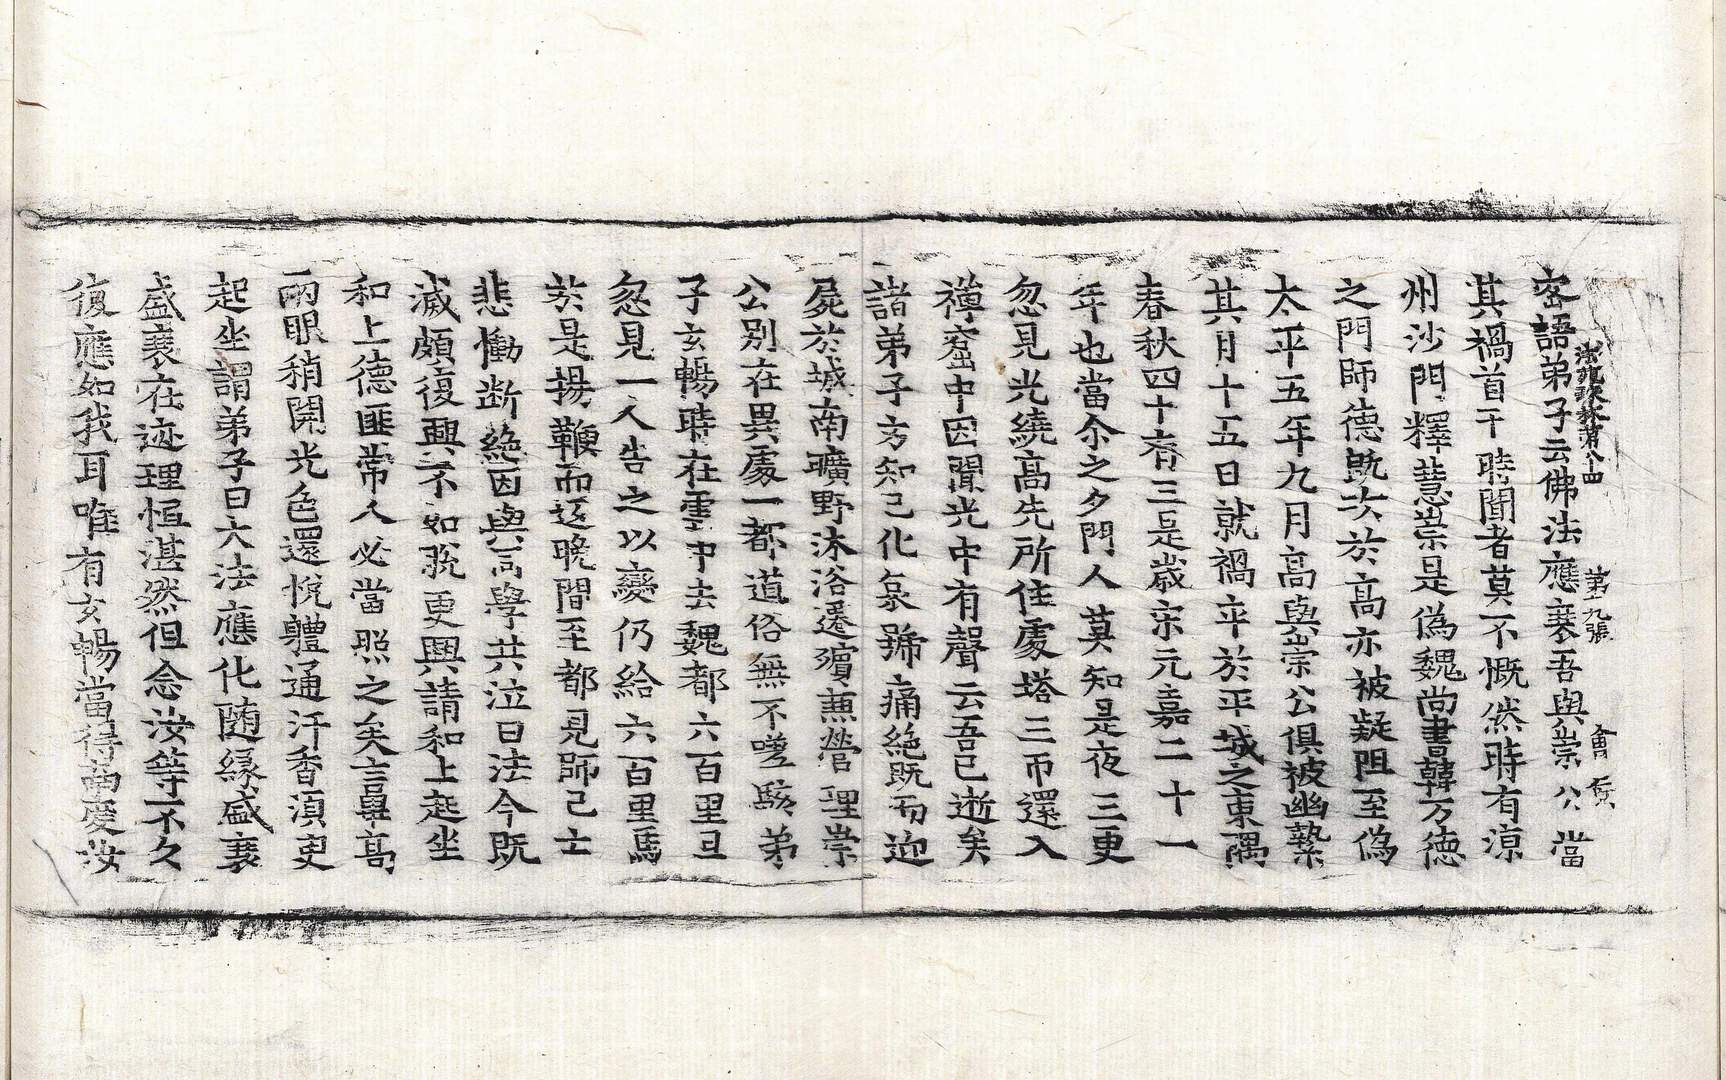 法苑珠林第八十四　第九張　會
密語弟子云佛法應衰吾與崇公當
其禍首乎時聞者莫不慨然時有涼
州沙門釋慧崇是僞魏尚書韓万德
之門師德旣次於高亦被疑阻至僞
太平五年九月高與崇公俱被幽縶
其月十五日就禍卒於平城之東隅
春秋四十有三是歲宋元嘉二十一
年也當尒之夕門人莫知是夜三更
忽見光繞高先所住處塔三帀還入
禪窟中因聞光中有聲云吾已逝矣
諸弟子方知已化哀號痛絶旣而迎
屍於城南曠野沐浴遷殯兼營理崇
公別在異處一都道俗無不嗟駭弟
子玄暢時在雲中去魏都六百里旦
忽見一人告之以變仍給六百里馬
於是揚鞭而返晚間至都見師已亡
悲慟断絶因與同學共泣曰法今旣
滅頗復興不如脫更興請和上起坐
和上德匪常人必當照之矣言畢高
兩眼稍開光色還悅軆通汗香湏臾
起坐謂弟子曰大法應化随緣盛衰
盛衰在迹理恒湛然但念汝等不久
復應如我耳唯有玄暢當得南度汝